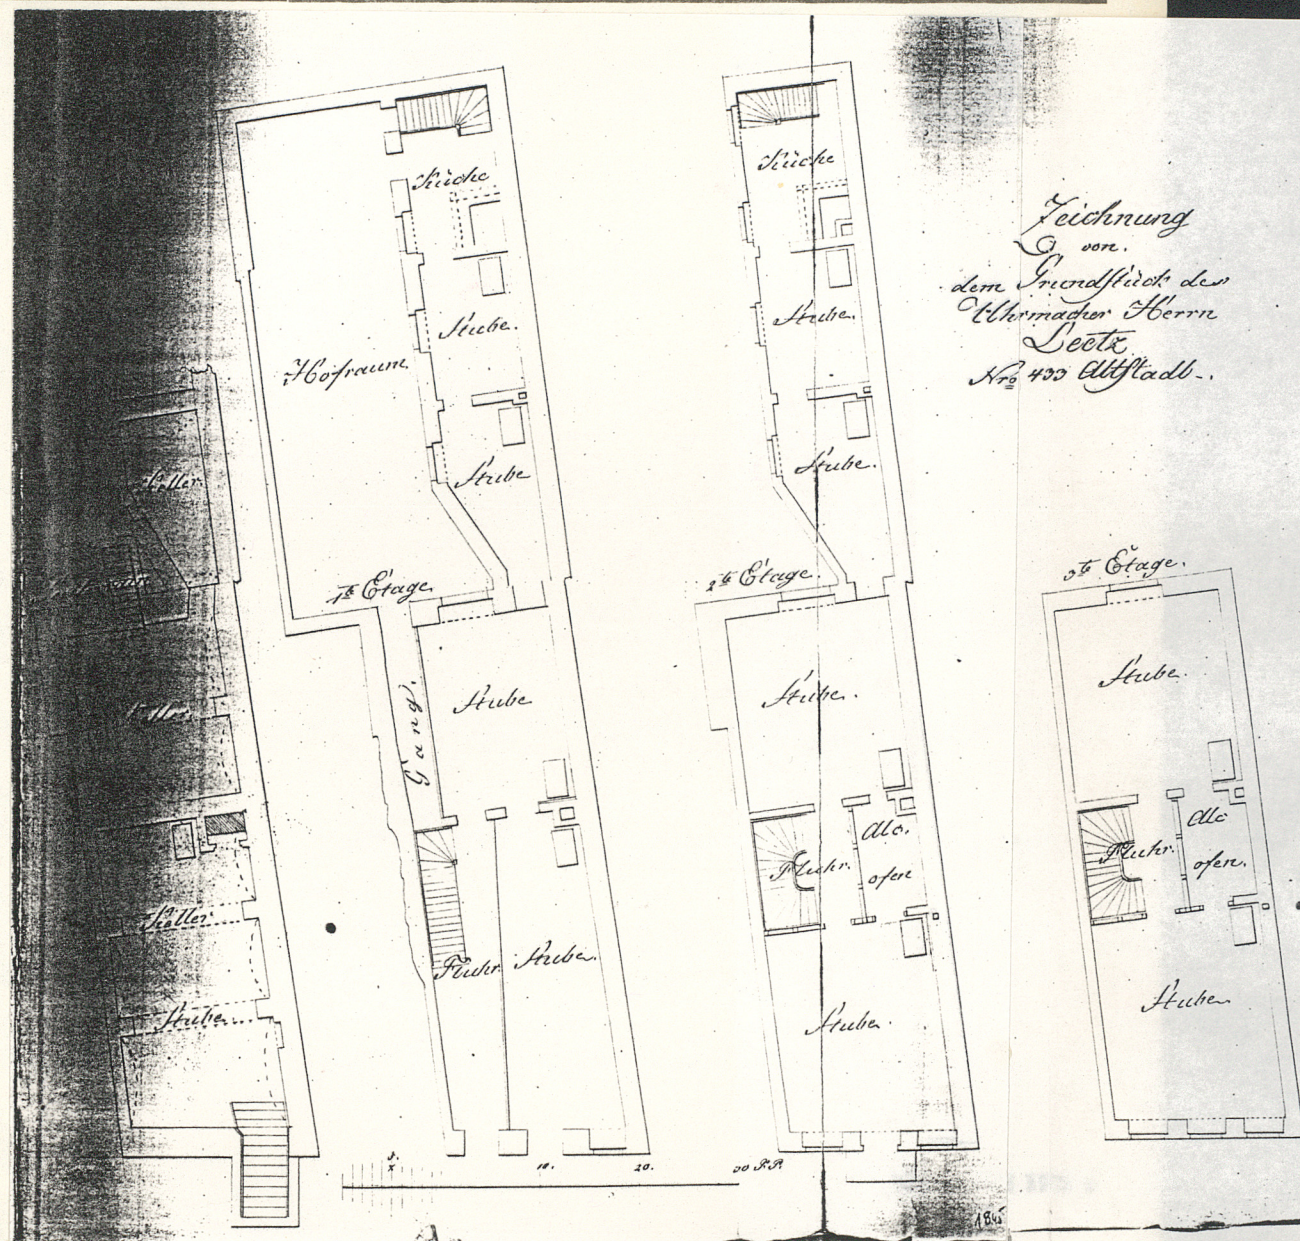 Zeichnung
von
dem Grundstück des
Uhrmacher Herrn
Leetz
Nro 433 Altstadt.
Keller
Keller
Keller
Stube
1te Etage.
Küche
Stube.
Stube
Hofraum
Gang.
Stube
Fluhr
Stube.
2te Etage.
Küche
Stube.
Stube.
Stube.
Fluhr.
Alc.
ofen
Stube.
3te Etage.
Stube.
Fluhr.
Alc
ofen.
Stube.
5.
10.
20.
30 F.P.
1845